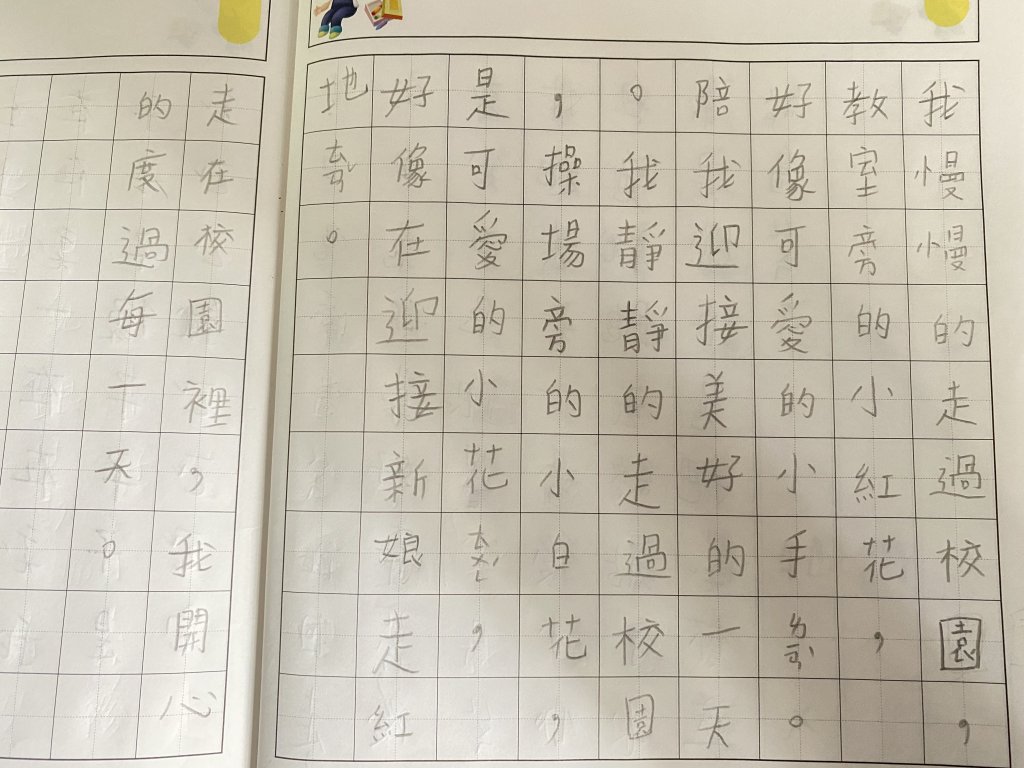 我慢慢的走過校園，
教室旁的小紅花，
好像可愛的小手。
陪我迎接美好的一天
。我靜靜的走過校園
，操場旁的小白花，
是可愛的小花，
好像在迎接新娘走紅
地。
走在校園裡，我開心
的度過每一天。